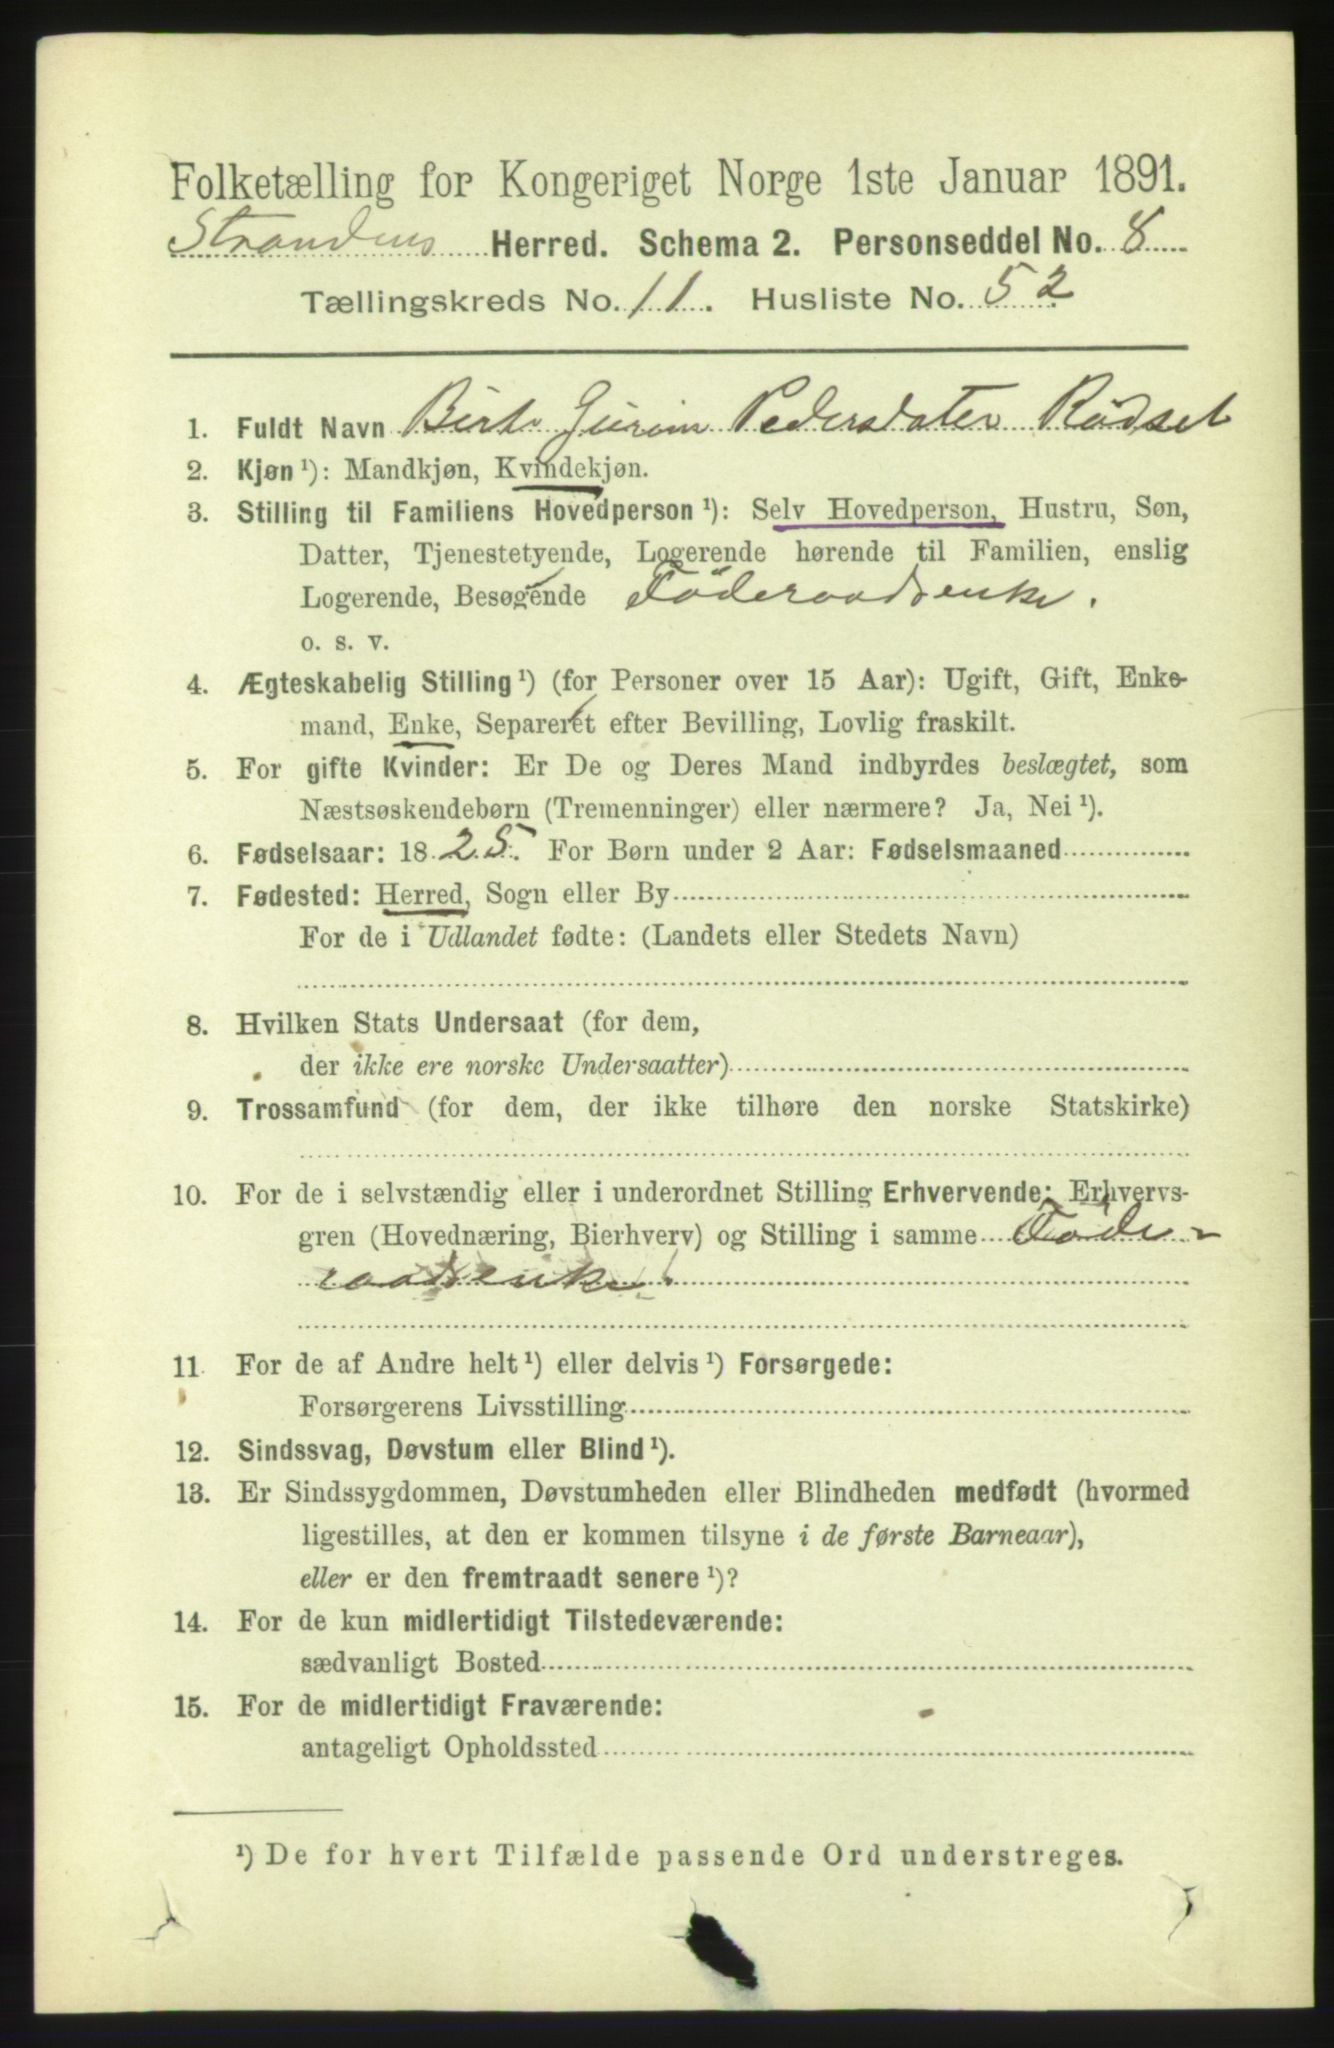 Folketælling for Kongeriget Norge 1ste Januar 1891.
Strandens Herred. Schema 2. Personseddel No. 8
Tællingskreds No. 11. Husliste No. 52
1. Fuldt Navn Birte Gurine Pedersdater Rødset
2. Kjøn ¹): Mandkjøn, Kvindekjøn.
3. Stilling til Familiens Hovedperson ¹): Selv Hovedperson, Hustru, Søn,
Datter, Tjenestetyende, Logerende hørende til Familien, enslig
Logerende, Besøgende Föderaadsenke.
o. s. v.
4. Ægteskabelig Stilling ¹) (for Personer over 15 Aar): Ugift, Gift, Enke-
mand, Enke, Separeret efter Bevilling, Lovlig fraskilt.
5. For gifte Kvinder: Er De og Deres Mand indbyrdes beslægtet, som
Næstsøskendebørn (Tremenninger) eller nærmere? Ja, Nei ¹).
6. Fødselsaar: 1825. For Børn under 2 Aar: Fødselsmaaned
7. Fødested: Herred, Sogn eller By
For de i Udlandet fødte: (Landets eller Stedets Navn)
8. Hvilken Stats Undersaat (for dem,
der ikke ere norske Undersaatter)
9. Trossamfund (for dem, der ikke tilhøre den norske Statskirke)
10. For de i selvstændig eller i underordnet Stilling Erhvervende: Erhvervs-
gren (Hovednæring, Bierhverv) og Stilling i samme Föde-
raadsenke.
11 For de af Andre helt ¹) eller delvis ¹) Forsørgede:
Forsørgerens Livsstilling
12. Sindssvag, Døvstum eller Blind ¹).
13. Er Sindssygdommen, Døvstumheden eller Blindheden medfødt (hvormed
ligestilles, at den er kommen tilsyne i de første Barneaar),
eller er den fremtraadt senere ¹)?
14. For de kun midlertidigt Tilstedeværende:
sædvanligt Bosted
15. For de midlertidigt Fraværende:
antageligt Opholdssted
¹) De for hvert Tilfælde passende Ord understreges.